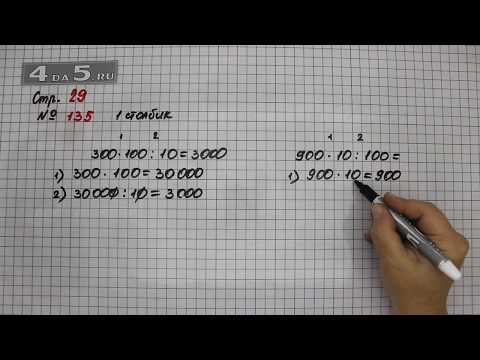 4 DA 5.RU
Стр. 29
№ 135 1 столбик
1 2
300 · 100 : 10 = 3000
1) 300 · 100 = 30000
2) 30000 : 10 = 3000
1 2
900 · 10 : 100 =
1) 900 · 10 = 900